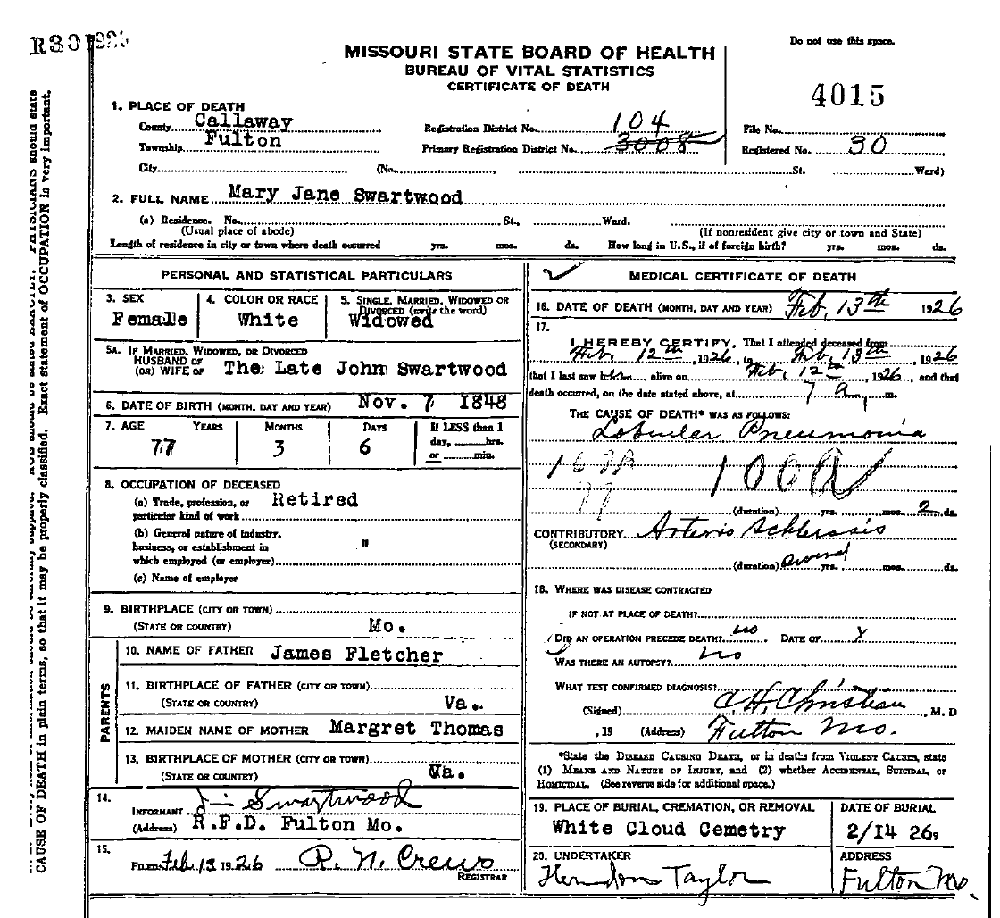 Do not use this space.
MISSOURI STATE BOARD OF HEALTH
BUREAU OF VITAL STATISTICS
CERTIFICATE OF DEATH
4015
1. PLACE OF DEATH
County Callaway Registration District No. 104 File No.
Township Fulton Primary Registration District No. 3008 Registered No. 30
City (No. St. Ward)
2. FULL NAME Mary Jane Swartwood
(a) Residence. No. St., Ward.
(Usual place of abode) (If nonresident give city or town and State)
Length of residence in city or town where death occurred yrs. mos. ds. How long in U.S., if of foreign birth? yrs. mos. ds.
PERSONAL AND STATISTICAL PARTICULARS
3. SEX 4. COLOR OR RACE 5. SINGLE, MARRIED, WIDOWED OR DIVORCED (write the word)
Female White Widowed
5A. IF MARRIED, WIDOWED, OR DIVORCED
HUSBAND OF
(OR) WIFE OF The Late John Swartwood
6. DATE OF BIRTH (MONTH, DAY AND YEAR) Nov. 7 1848
7. AGE YEARS MONTHS DAYS If LESS than 1
day, hrs.
or min.
77 3 6
8. OCCUPATION OF DECEASED
(a) Trade, profession, or
particular kind of work Retired
(b) General nature of industry,
business, or establishment in
which employed (or employer) "
(c) Name of employer
9. BIRTHPLACE (CITY OR TOWN)
(STATE OR COUNTRY) Mo.
PARENTS
10. NAME OF FATHER James Fletcher
11. BIRTHPLACE OF FATHER (CITY OR TOWN)
(STATE OR COUNTRY) Va.
12. MAIDEN NAME OF MOTHER Margret Thomas
13. BIRTHPLACE OF MOTHER (CITY OR TOWN)
(STATE OR COUNTRY) Va.
14.
INFORMANT Swartwood
(Address) R.F.D. Fulton Mo.
15.
FILED Feb 13 1926 R. N. Crews
REGISTRAR
MEDICAL CERTIFICATE OF DEATH
16. DATE OF DEATH (MONTH, DAY AND YEAR) Feb, 13th 1926
17.
I HEREBY CERTIFY, That I attended deceased from
Feb 12th, 1926, to Feb, 13th, 1926
that I last saw alive on Feb, 12th, 1926, and that
death occurred, on the date stated above, at 7 a m.
THE CAUSE OF DEATH* WAS AS FOLLOWS:
Lobular Pneumonia
(duration) yrs. mos. 2 ds.
CONTRIBUTORY Arterio Schlerosis
(SECONDARY)
(duration) several yrs. mos. ds.
18. WHERE WAS DISEASE CONTRACTED
IF NOT AT PLACE OF DEATH?
DID AN OPERATION PRECEDE DEATH? no DATE OF x
WAS THERE AN AUTOPSY? no
WHAT TEST CONFIRMED DIAGNOSIS?
(Signed) Christian, M.D
, 19 (Address) Fulton Mo.
*State the DISEASE CAUSING DEATH, or in deaths from VIOLENT CAUSES, state
(1) MEANS AND NATURE OF INJURY, and (2) whether ACCIDENTAL, SUICIDAL, or
HOMICIDAL. (See reverse side for additional space.)
19. PLACE OF BURIAL, CREMATION, OR REMOVAL DATE OF BURIAL
White Cloud Cemetry 2/14 26
20. UNDERTAKER ADDRESS
Herndon Taylor Fulton Mo.
CAUSE OF DEATH in plain terms, so that it may be properly classified. Exact statement of OCCUPATION is very important.